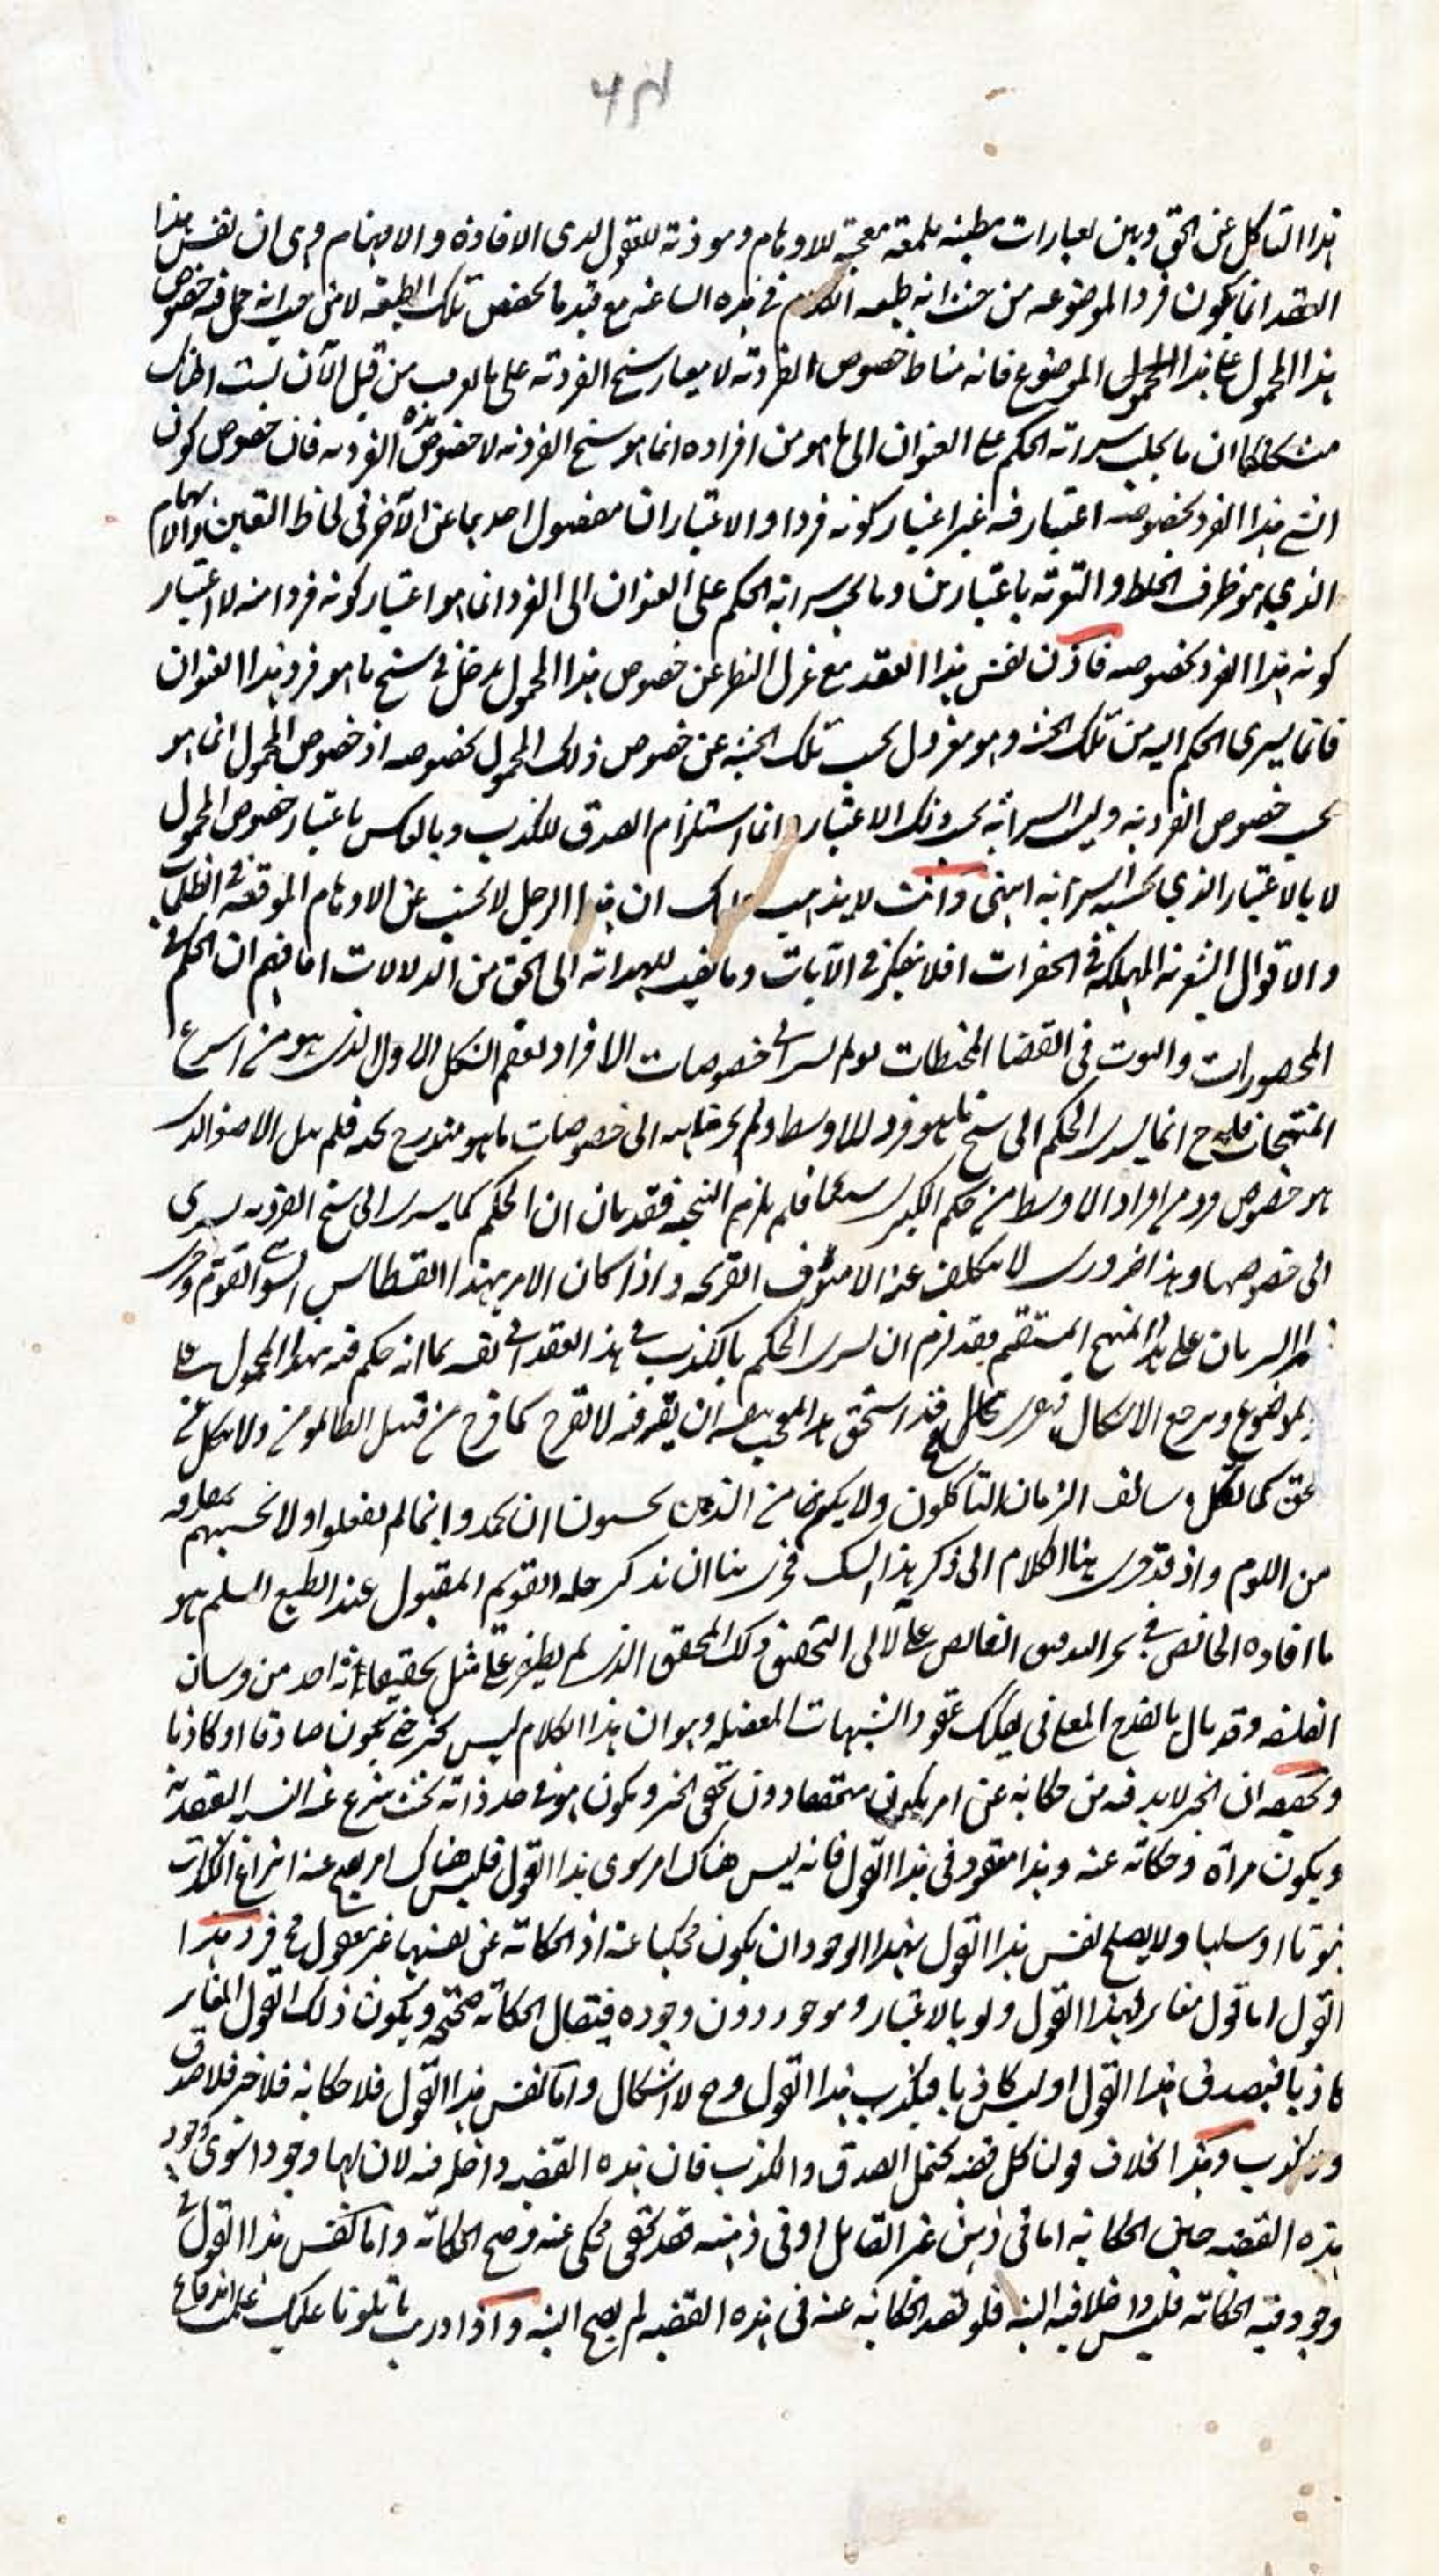 هذا التأكل عن الحق وبين بعبارات مطنبه ملمعة معجبة للاوهام وموذية للعقول لدى الافادة والافهام وهى ان نفس هذا
العقد انما يكون فردا لموضوعه من حيث انه طبيعه الكلام في هذه الساعه مع قيد ما يخصص تلك الطبيعة لا من حيث انه حمل فيه خصوص
هذا المحمول على هذا الموضوع فانه مناط خصوص الفردية لا معيار سنخ الفردية على ما لعرب من قبل الآن لست اظنك
متشككا ان ما يجلب سراية الحكم على العنوان الى ما هو من افراده انما هو سنخ الفردية لا خصوص الفردية فان خصوص كون
الشئ هذا الفرد بخصوصه اعتبار فيه غير اعتبار كونه فردا والاعتباران مفصول احدهما عن الآخر في لحاظ التعين والابهام
الذي هو ظرف الخلط والتعرية باعتبارين وما يجلب سراية الحكم على العنوان الى الفرد انما هو اعتبار كونه فردا منه لا اعتبار
كونه هذا الفرد بخصوصه فاذن نفس هذا العقد مع عزل النظر عن خصوص هذا المحمول يدخل في سنخ ما هو فرد هذا العنوان
فانما يسرى الحكم اليه من تلك الحيثية وهو معزول بحسب تلك الحيثية عن خصوص ذلك المحمول بخصوصه اذ خصوص المحمول انما هو
بحسب خصوص الفردية وليس السراية بحسب ذلك الاعتبار وانما استلزام الصدق للكذب وبالعكس باعتبار خصوص المحمول
لا بالاعتبار الذي بحسبه السراية انتهى وانت لا يذهب عليك ان هذا الرجل لا يجتنب عن الاوهام الموقعة في الظلمات
والاقوال الشعرية المهلكة في الحفرات افلا يتفكر في الآيات وما يفيد للهداية الى الحق من الدلالات اما فهم ان الحكم في
المحصورات والثبوت في القضايا المحيطات لو لم يسر الى خصوصات الافراد لعقم الشكل الاول الذى هو من اسرع
المنتجات فان ح انما يسرى الحكم الى سنخ ما هو فرد للاوسط ولم يسر الى خصوصات ما هو مندرج تحته فلم ينل الاصغر الذى
هو خصوص فرد من افراد الاوسط من حكم الكبرى شيئا فلم يلزم النتيجه فقد بان ان الحكم كما يسرى الى سنخ الفردية يسرى
الى خصوصها وهذا ضرورى لا يتخلف عنه الا مئوف القريحه واذا كان الامر بهذا القسطاس السوى القويم وجرى
امر السريان على هذا المنهج المستقيم فقد لزم ان يسرى الحكم بالكذب في هذا العقد الى نفسه بما انه حكم فيه بهذا المحمول على
الموضوع ويرجع الاشكال فيعود بحاله فقد استحق هذا المعجب بنفسه ان يقال فيه لا تفرح كما فرح من قبل الظالمون ولا تنكل عن
الحق كما نكل في سالف الزمان الناكلون ولا يكونن من الذين يحسبون ان يحمدوا بما لم يفعلوا ولا تحسبنهم بمفازة
من اللوم واذ قد جرى بنا الكلام الى ذكر هذا الشك فحرى بنا ان نذكر حله القويم المقبول عند الطبع السليم هو
ما افاده الخائض في بحر التدقيق الغائص على لآلى التحقيق ذلك المحقق الذى لم يظفر على مثل تحقيقاته احد من فرسان
الفلسفه وقد نال بالقدح المعلى في فك عقود الشبهات المعضله وهو ان هذا الكلام ليس بخبر حتى يكون صادقا او كاذبا
وتحقيقه ان الخبر لا بد فيه من حكاية عن امر يكون متحققا دون تحقق الخبر ويكون هو في حد ذاته بحيث ينتزع عنه النسبة العقدية
ويكون مرآة وحكاية عنه وهذا مفقود في هذا القول فانه ليس هناك امر سوى هذا القول فليس هناك امر يصح عنه انتزاع الكذب
ثبوتا او سلبا ولا يصلح نفس هذا القول بهذا الوجود ان يكون محكيا عنه اذ الحكاية عن نفسها غير معقول ففرد هذا
القول اما قول مغاير لهذا القول ولو بالاعتبار وموجود دون وجوده فيقال الحكاية صحيحة ويكون ذلك القول المغاير
كاذبا فيصدق هذا القول او ليس كاذبا فيكذب هذا القول وح لا اشكال واما نفس هذا القول فلا حكاية فلا خبر فلا صدق
ولا كذب وهذا بخلاف قولنا كل قضيه تحتمل الصدق والكذب فان هذه القضيه داخله فيه لان لها وجودا سوى وجود
هذه القضيه حين الحكاية اما في ذهن غير القائل او في ذهنه فقد تحقق محكى عنه فصح الحكاية واما نفس هذا القول في
وجود فيه الحكاية فليس داخلا فيه البته فلو قصد الحكاية عنه في هذه القضيه لم يصح البته واذا دريت ما تلونا عليك علمت اندفاع